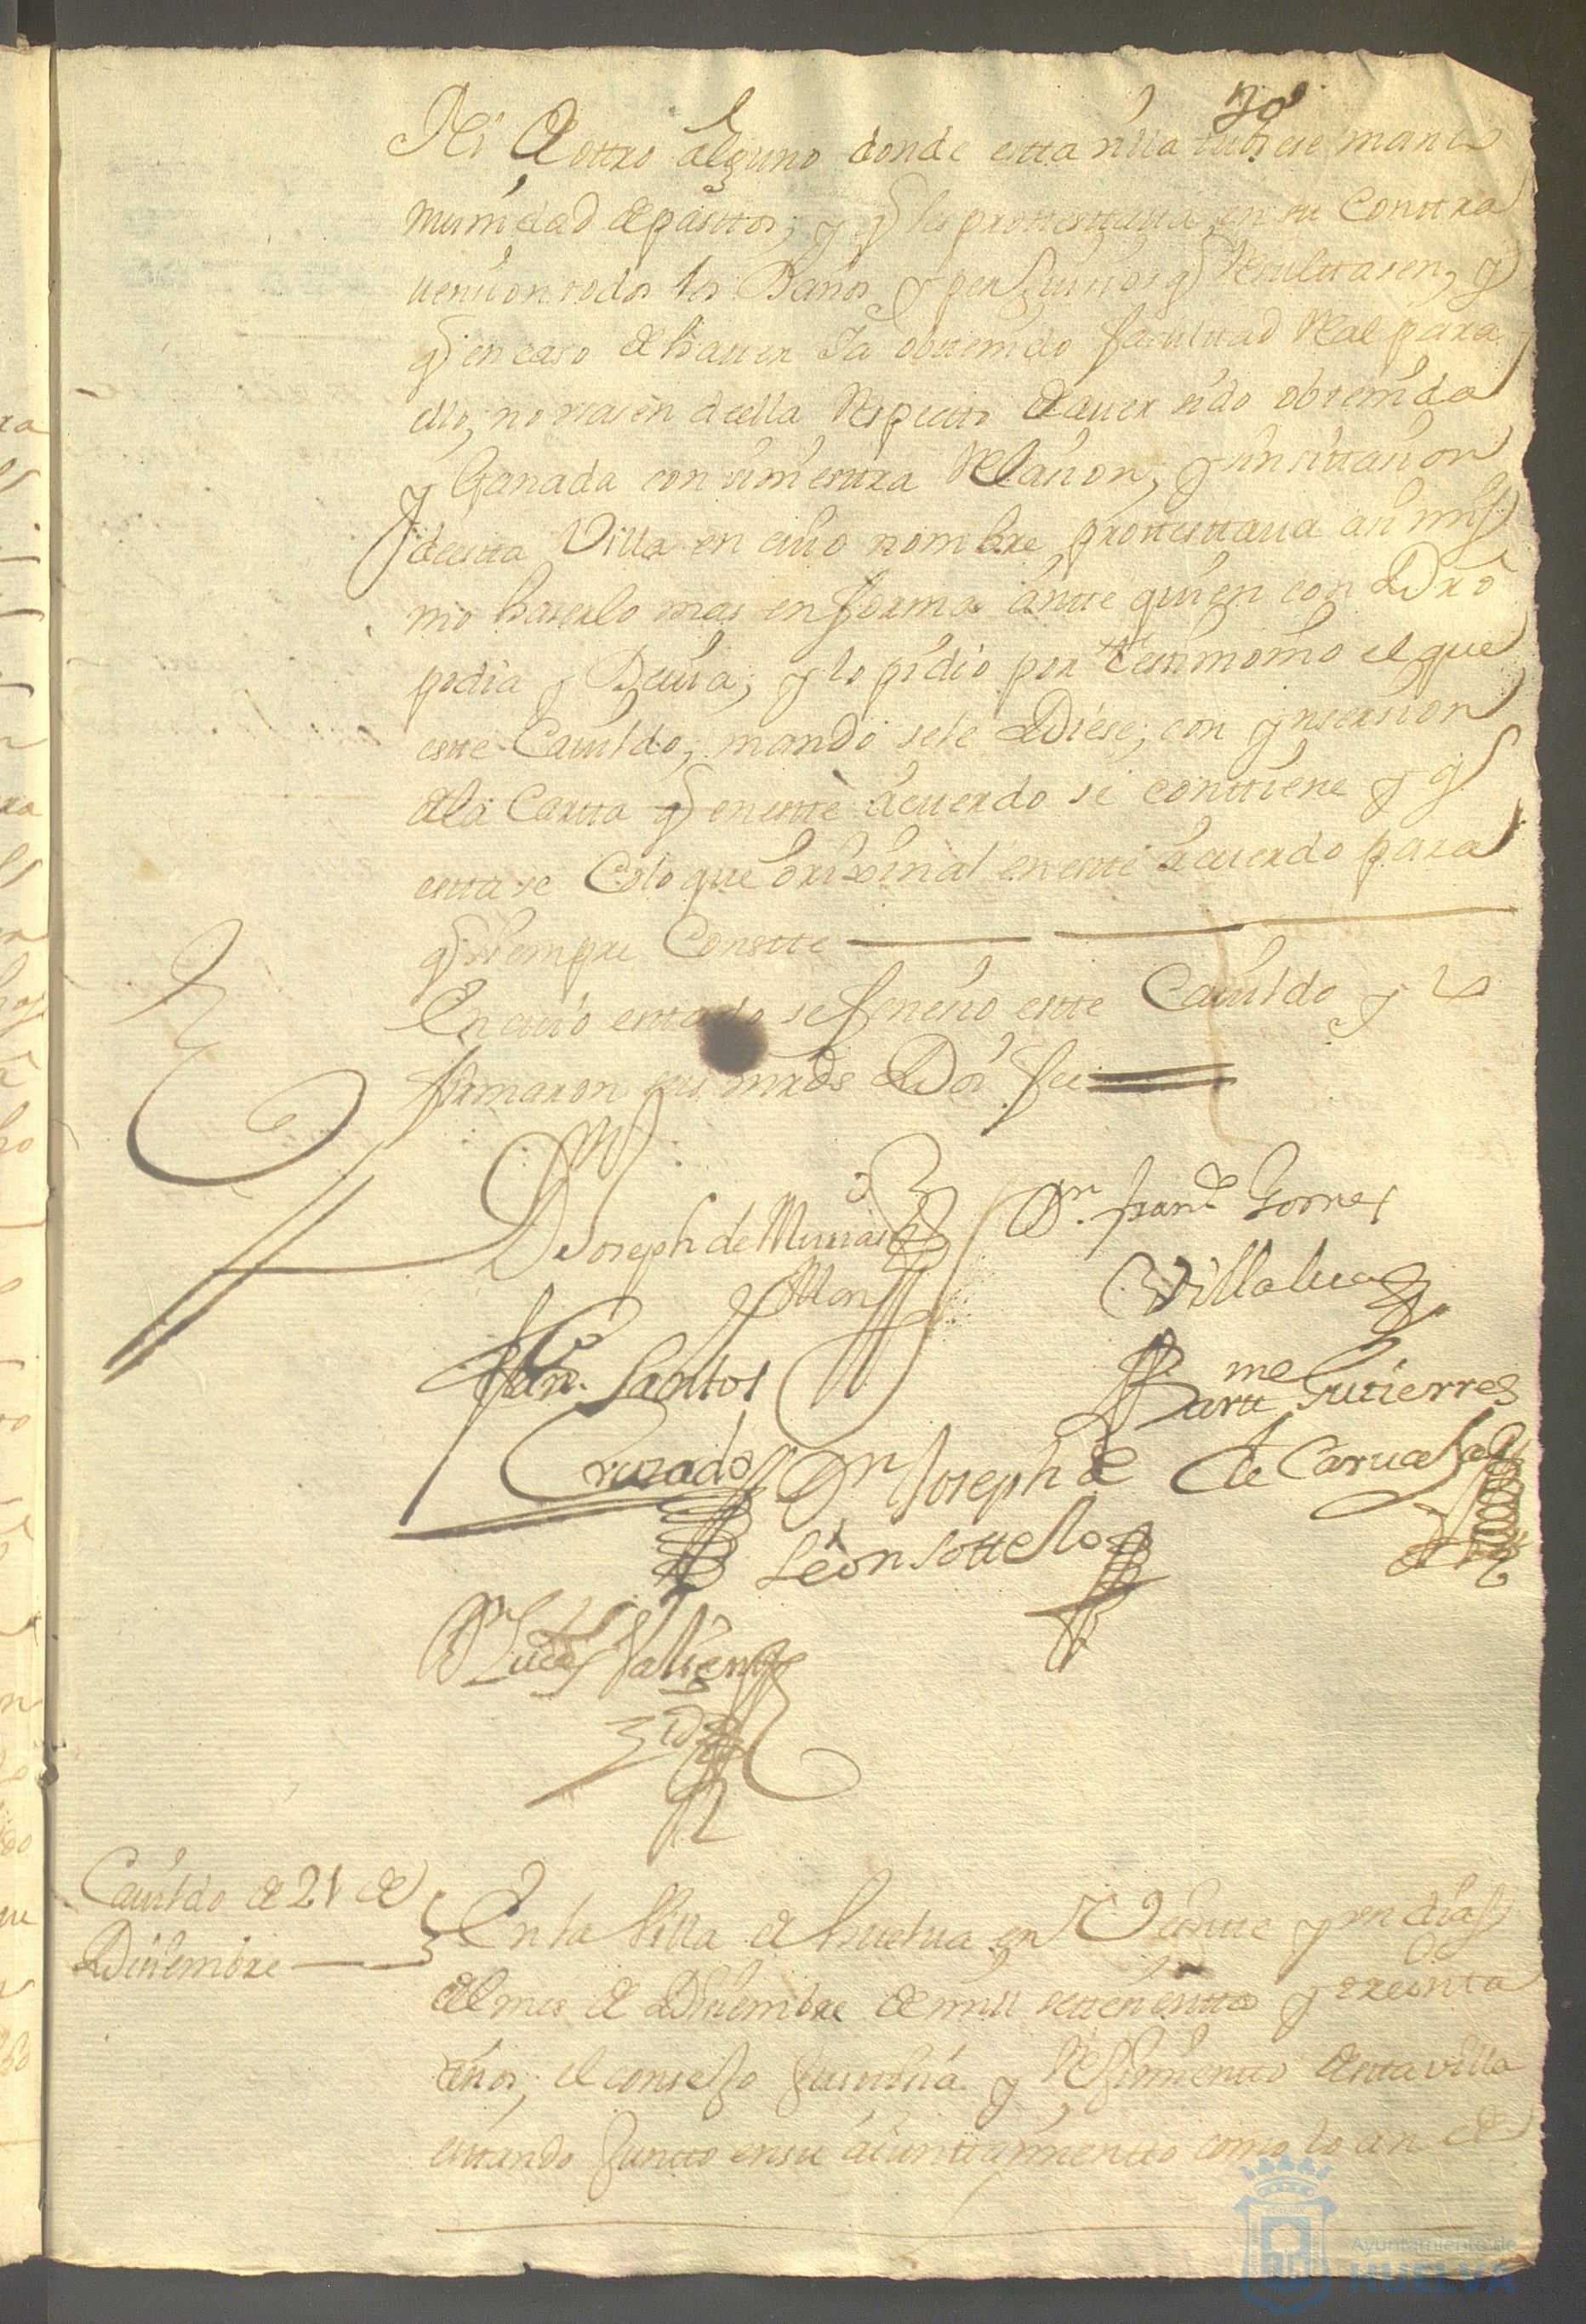 30
Ni A ottro alguno donde estta villa tubiese manco
munidad de pasttos; y q les prottesttaua en su Conttra
uencion todos los Daños y perjuicios q Resulttasen, y
q en caso de hauer Ya obttenido facultad Real para
ello, no vsasen de ella Respectto de auer sido obtenida
y Ganada con siniesttra Relacion, y sin cittacion
de estta Villa en cuio nombre prottesttaua asi mis
mo haserlo mas en forma antte quien con Dro
podia y Deuia; y lo pidio por testimonio el que
este Cauildo, mando se le Diese, con ynsercion
de la Cartta q en estte acuerdo se conttiene y q
estta se Coloque orixinal en estte acuerdo para
q siempre Constte
En cuio estado se fenecio estte Cauildo y lo
firmaron sus mrds Doi fee
D Joseph de
Dn. Franco Gomes
Villalua
Franco. Santos
Cruzado
Bartme Gutierres
de Caruajal
Dn Joseph de
León sottelo
Lucas Valiente
Cauildo de 21 de
Diciembre
En la Villa de huelua en Veinte y un dias
del mes de Diciembre de mill settecientos y treinta
años, el consejo Justticia y Rejimientto de estta villa
esttando Juntto en su aiunttamientto como lo an de
Ayuntamiento de
HUELVA